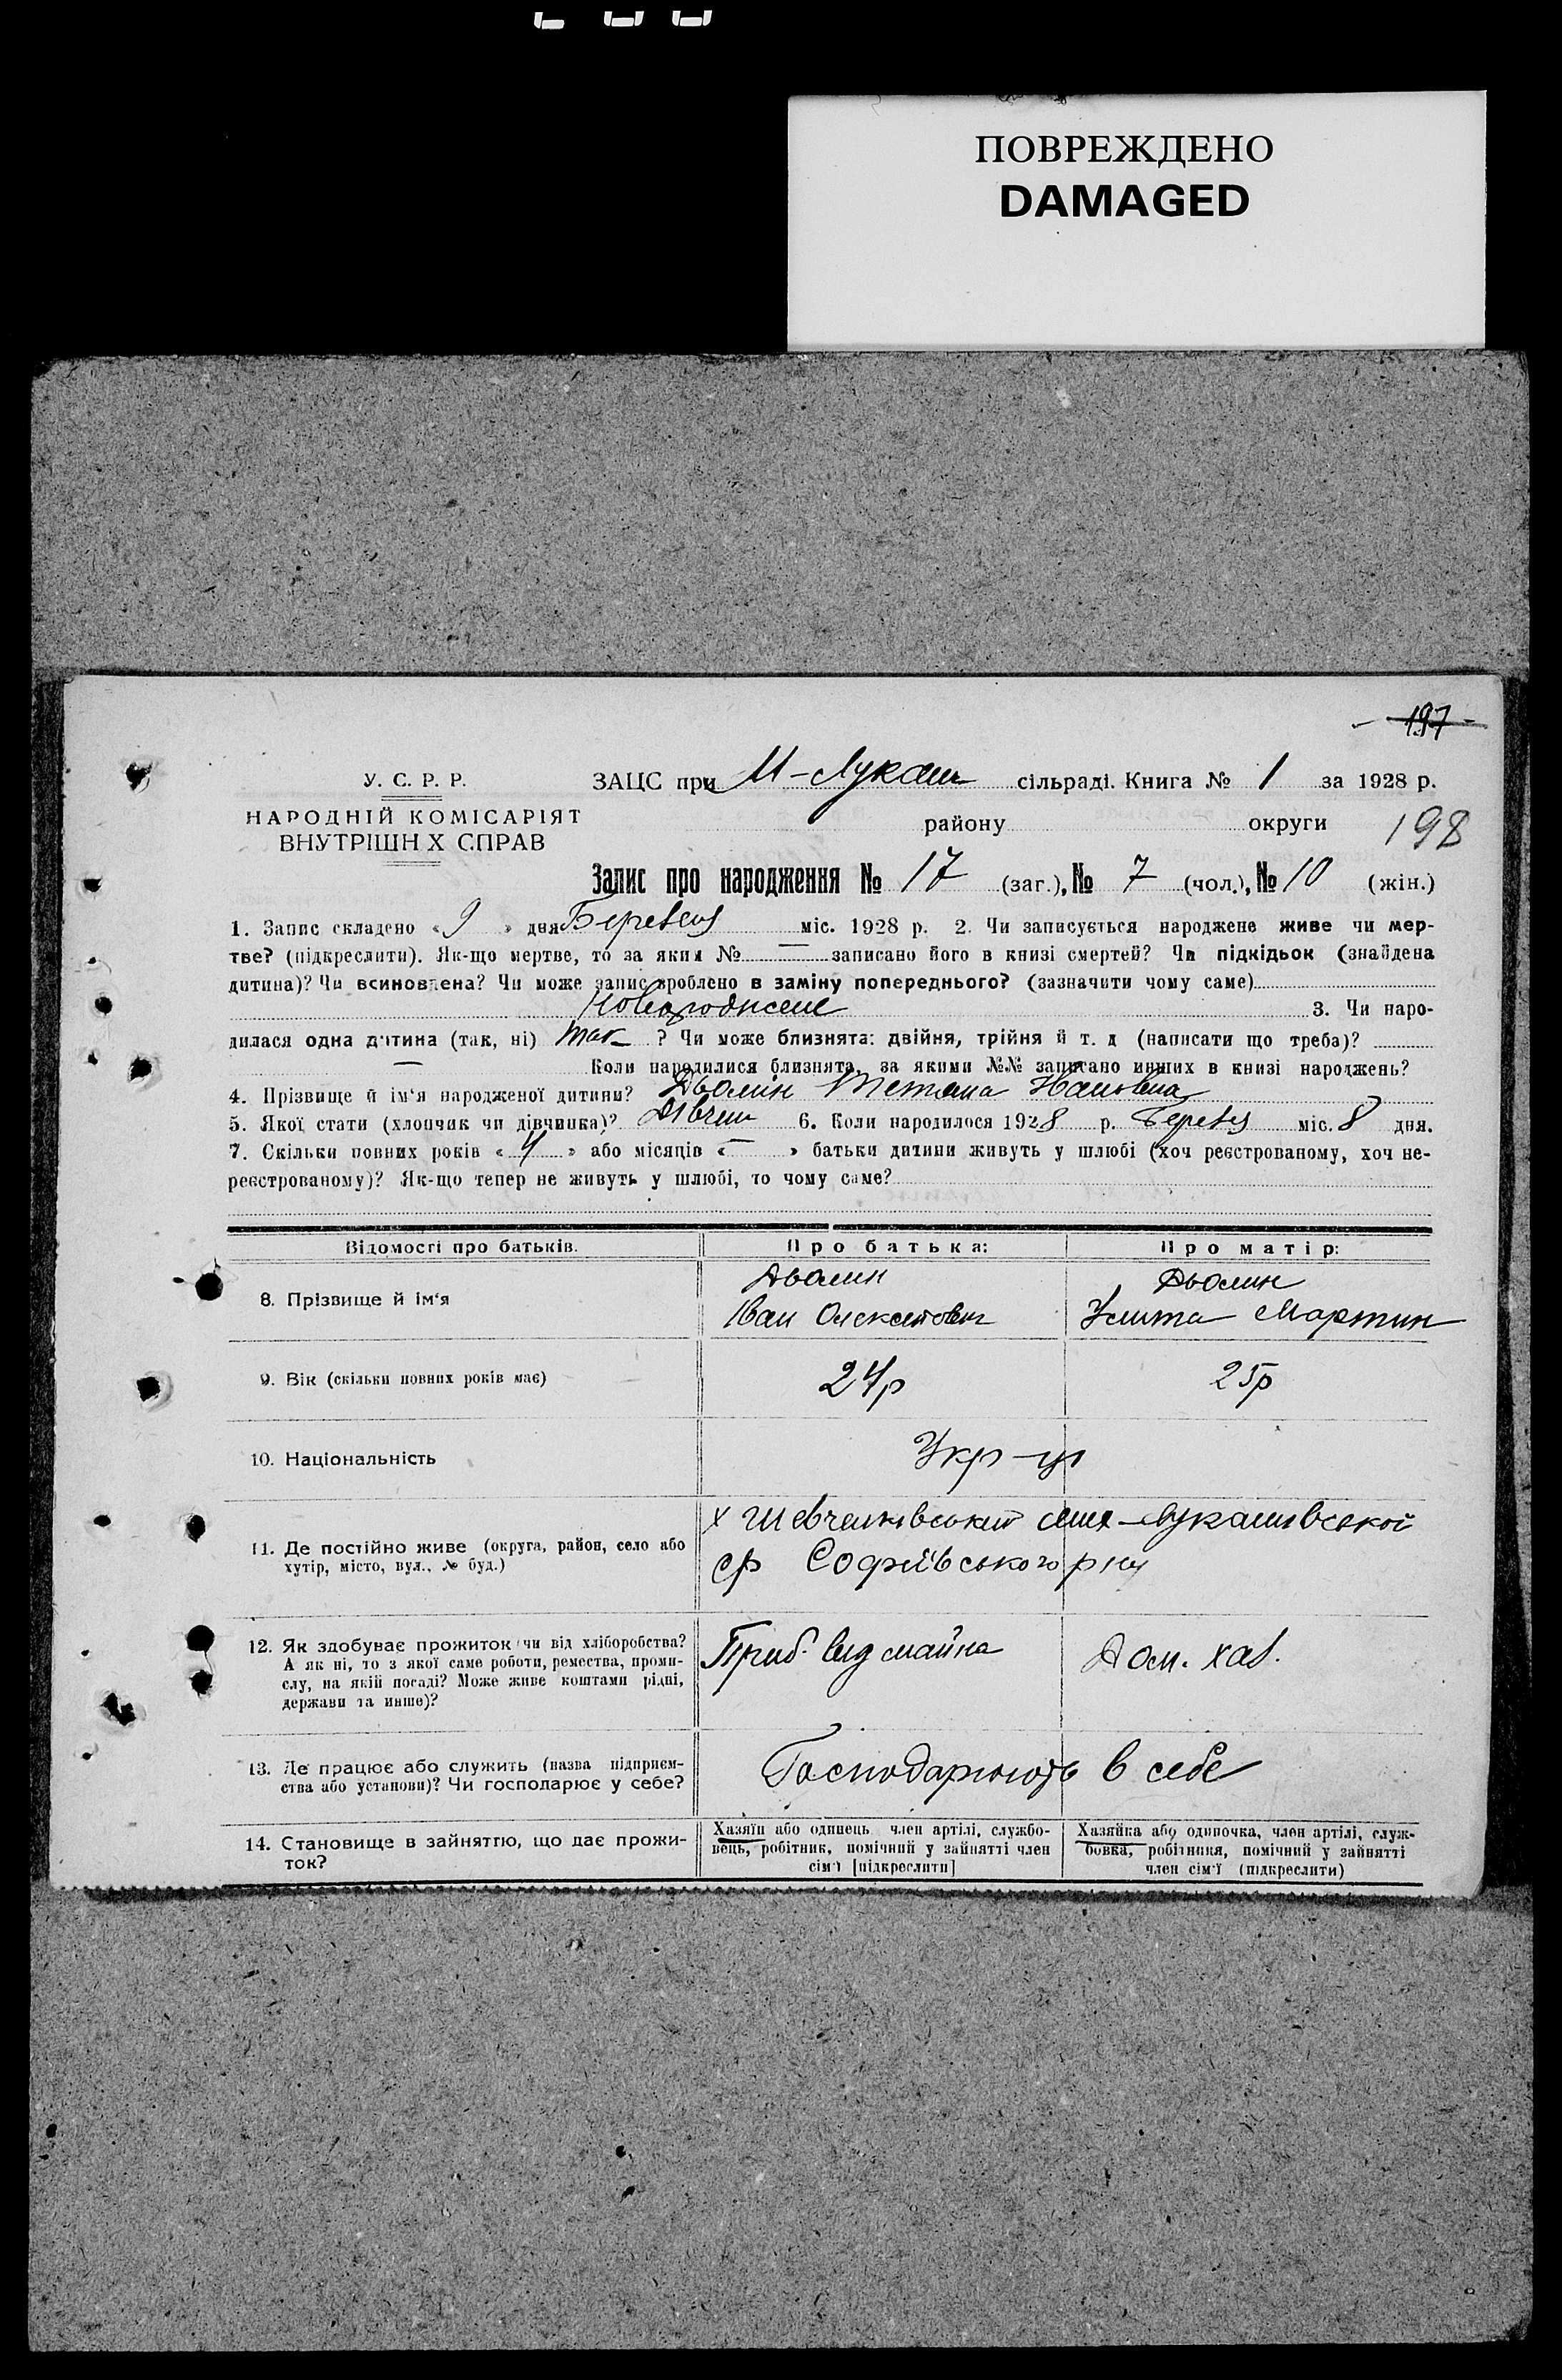 ПОВРЕЖДЕНО
DAMAGED
197
У. С. Р. Р.
НАРОДНІЙ КОМІСАРІЯТ
ВНУТРІШН Х СПРАВ
ЗАЦС при М-Лукаш сільраді. Книга № 1 за 1928 р.
району округи 198
Запис про народження № 17 (заг.), № 7 (чол.), № 10 (жін.)
1. Запис складено «9» дня Березня міс. 1928 р. 2. Чи записується народжене живе чи мер-
тве? (підкреслити). Як-що мертве, то за яким № — записано його в книзі смертей? Чи підкідьок (знайдена
дитина)? Чи всиновлена? Чи може запис зроблено в заміну попереднього? (зазначити чому саме)
Новороджене 3. Чи наро-
дилася одна дитина (так, ні) так ? Чи може близнята: двійня, трійня й т. д (написати що треба)?
— Коли народилися близнята, за якими №№ записано инших в книзі народжень?
4. Прізвище й ім'я народженої дитини? Тетяна
5. Якої статі (хлопчик чи дівчинка)? Дівчин 6. Коли народилося 1928 р. Березня міс. 8 дня.
7. Скільки повних років «4» або місяців «—» батьки дитини живуть у шлюбі (хоч реєстрованому, хоч не-
реєстрованому)? Як-що тепер не живуть у шлюбі, то чому саме?
Відомості про батьків.
Про батька:
Про матір:
8. Прізвище й ім'я
Іван
Улита Мартин
9. Вік (скільки повних років має)
24р
25р
10. Національність
Укр-ці
11. Де постійно живе (округа, район, село або
хутір, місто, вул., № буд.)
х Шевченківський Лукашівської
ср Софіївського р ну
12. Як здобуває прожиток чи від хліборобства?
А як ні, то з якої саме роботи, ремества, проми-
слу, на якій посаді? Може живе коштами рідні,
держави та инше)?
Приб. від майна
Дом. хаз.
13. Де працює або служить (назва підприєм-
ства або установи)? Чи господарює у себе?
Господарюють в себе
14. Становище в зайняттю, що дає прожи-
ток?
Хазяїн або одинець член артілі, службо-
вець, робітник, помічний у зайнятті член
сім'ї [підкреслити]
Хазяйка або одиночка, член артілі, служ-
бовка, робітниця, помічний у зайнятті
член сім'ї (підкреслити)